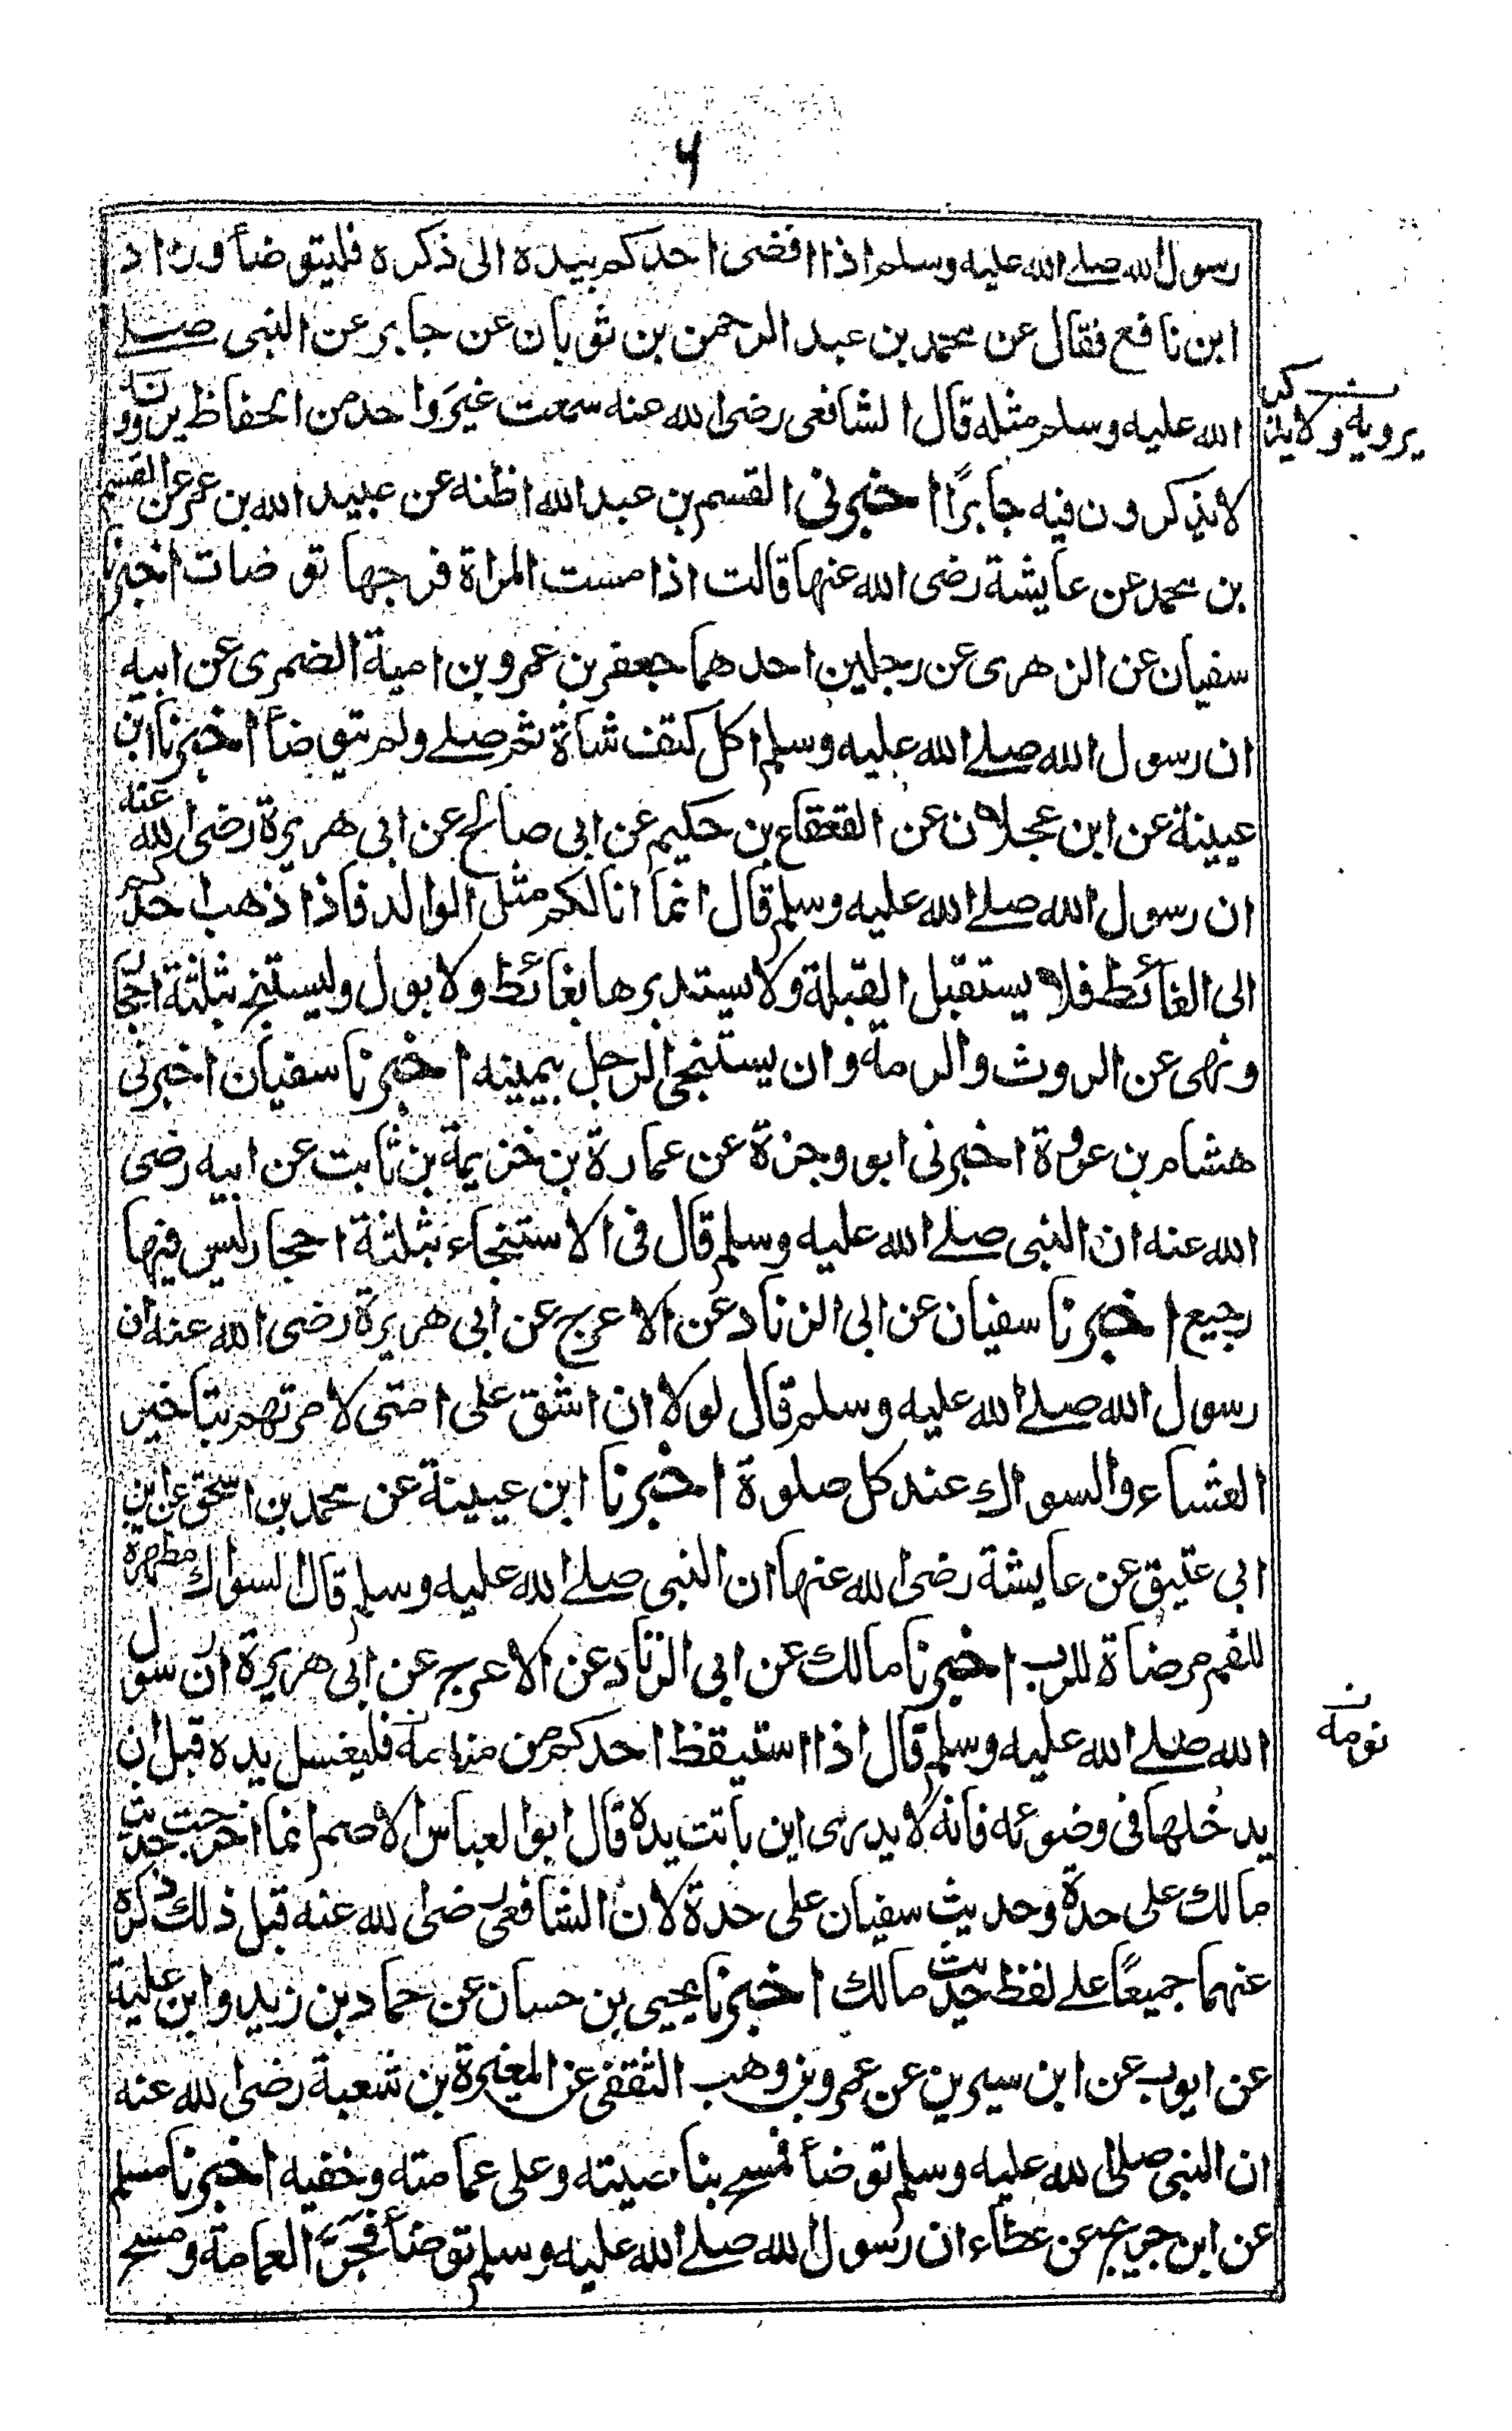 ۶
رسول الله صلے الله عليه وسلم اذا افضى احدكم بيده الى ذكره فليتوضأ وزاد
ابن نافع فقال عن محمد بن عبد الرحمن بن ثوبان عن جابر عن النبى صلے
الله عليه وسلم مثله قال الشافعى رضى الله عنه سمعت غير واحد من الحفاظ يروونه
يرويه ولا يذكر
لا يذكرون فيه جابرًا اخبرنى القسم بن عبد الله اظنه عن عبيد الله بن عمر عن القسم
بن محمد عن عايشة رضى الله عنها قالت اذا مست المراة فرجها توضات اخبرنا
سفيان عن الزهرى عن رجلين احدهما جعفر بن عمرو بن امية الضمرى عن ابيه
ان رسول الله صلے الله عليه وسلم اكل كتف شاة ثم صلے ولم يتوضأ اخبرنا ابن
عيينة عن ابن عجلان عن القعقاع بن حكيم عن ابى صالح عن ابى هريرة رضى الله عنه
ان رسول الله صلے الله عليه وسلم قال انما انا لكم مثل الوالد فاذا ذهب احدكم
الى الغائط فلا يستقبل القبلة ولا يستدبرها بغائط ولا بول وليستنج بثلثة احجا
ونهى عن الروث والرمة وان يستنجى الرجل بيمينه اخبرنا سفيان اخبرنى
هشام بن عروة اخبرنى ابو وجزة عن عمارة بن خزيمة بن ثابت عن ابيه رضى
الله عنه ان النبى صلے الله عليه وسلم قال فى الاستنجاء بثلثة احجار ليس فيها
رجيع اخبرنا سفيان عن ابى الزناد عن الاعرج عن ابى هريرة رضى الله عنه ان
رسول الله صلے الله عليه وسلم قال لولا ان اشق على امتى لامرتهم بتاخير
العشاء والسواك عند كل صلوة اخبرنا ابن عيينة عن محمد بن اسحق عن ابن
ابى عتيق عن عايشة رضى الله عنها ان النبى صلے الله عليه وسلم قال السواك مطهرة
للفم مرضاة للرب اخبرنا مالك عن ابى الزناد عن الاعرج عن ابى هريرة ان رسول
الله صلے الله عليه وسلم قال اذا استيقظ احدكم من منامه فليغسل يده قبل ان
نومه
يدخلها فى وضوئه فانه لا يدرى اين باتت يده قال ابو العباس الاصم انما اخرجت حديث
مالك على حدة وحديث سفيان على حدة لان الشافعى رضى الله عنه قبل ذلك ذكره
عنهما جميعًا على لفظ حديث مالك اخبرنا يحيى بن حسان عن حماد بن زيد وابن علية
عن ايوب عن ابن سيرين عن عمرو بن وهب الثقفى عن المغيرة بن شعبة رضى الله عنه
ان النبى صلى الله عليه وسلم توضأ فمسح بناصيته وعلى عمامته وخفيه اخبرنا مسلم
عن ابن جريج عن عطاء ان رسول الله صلے الله عليه وسلم توضأ فحسر العمامة ومسح